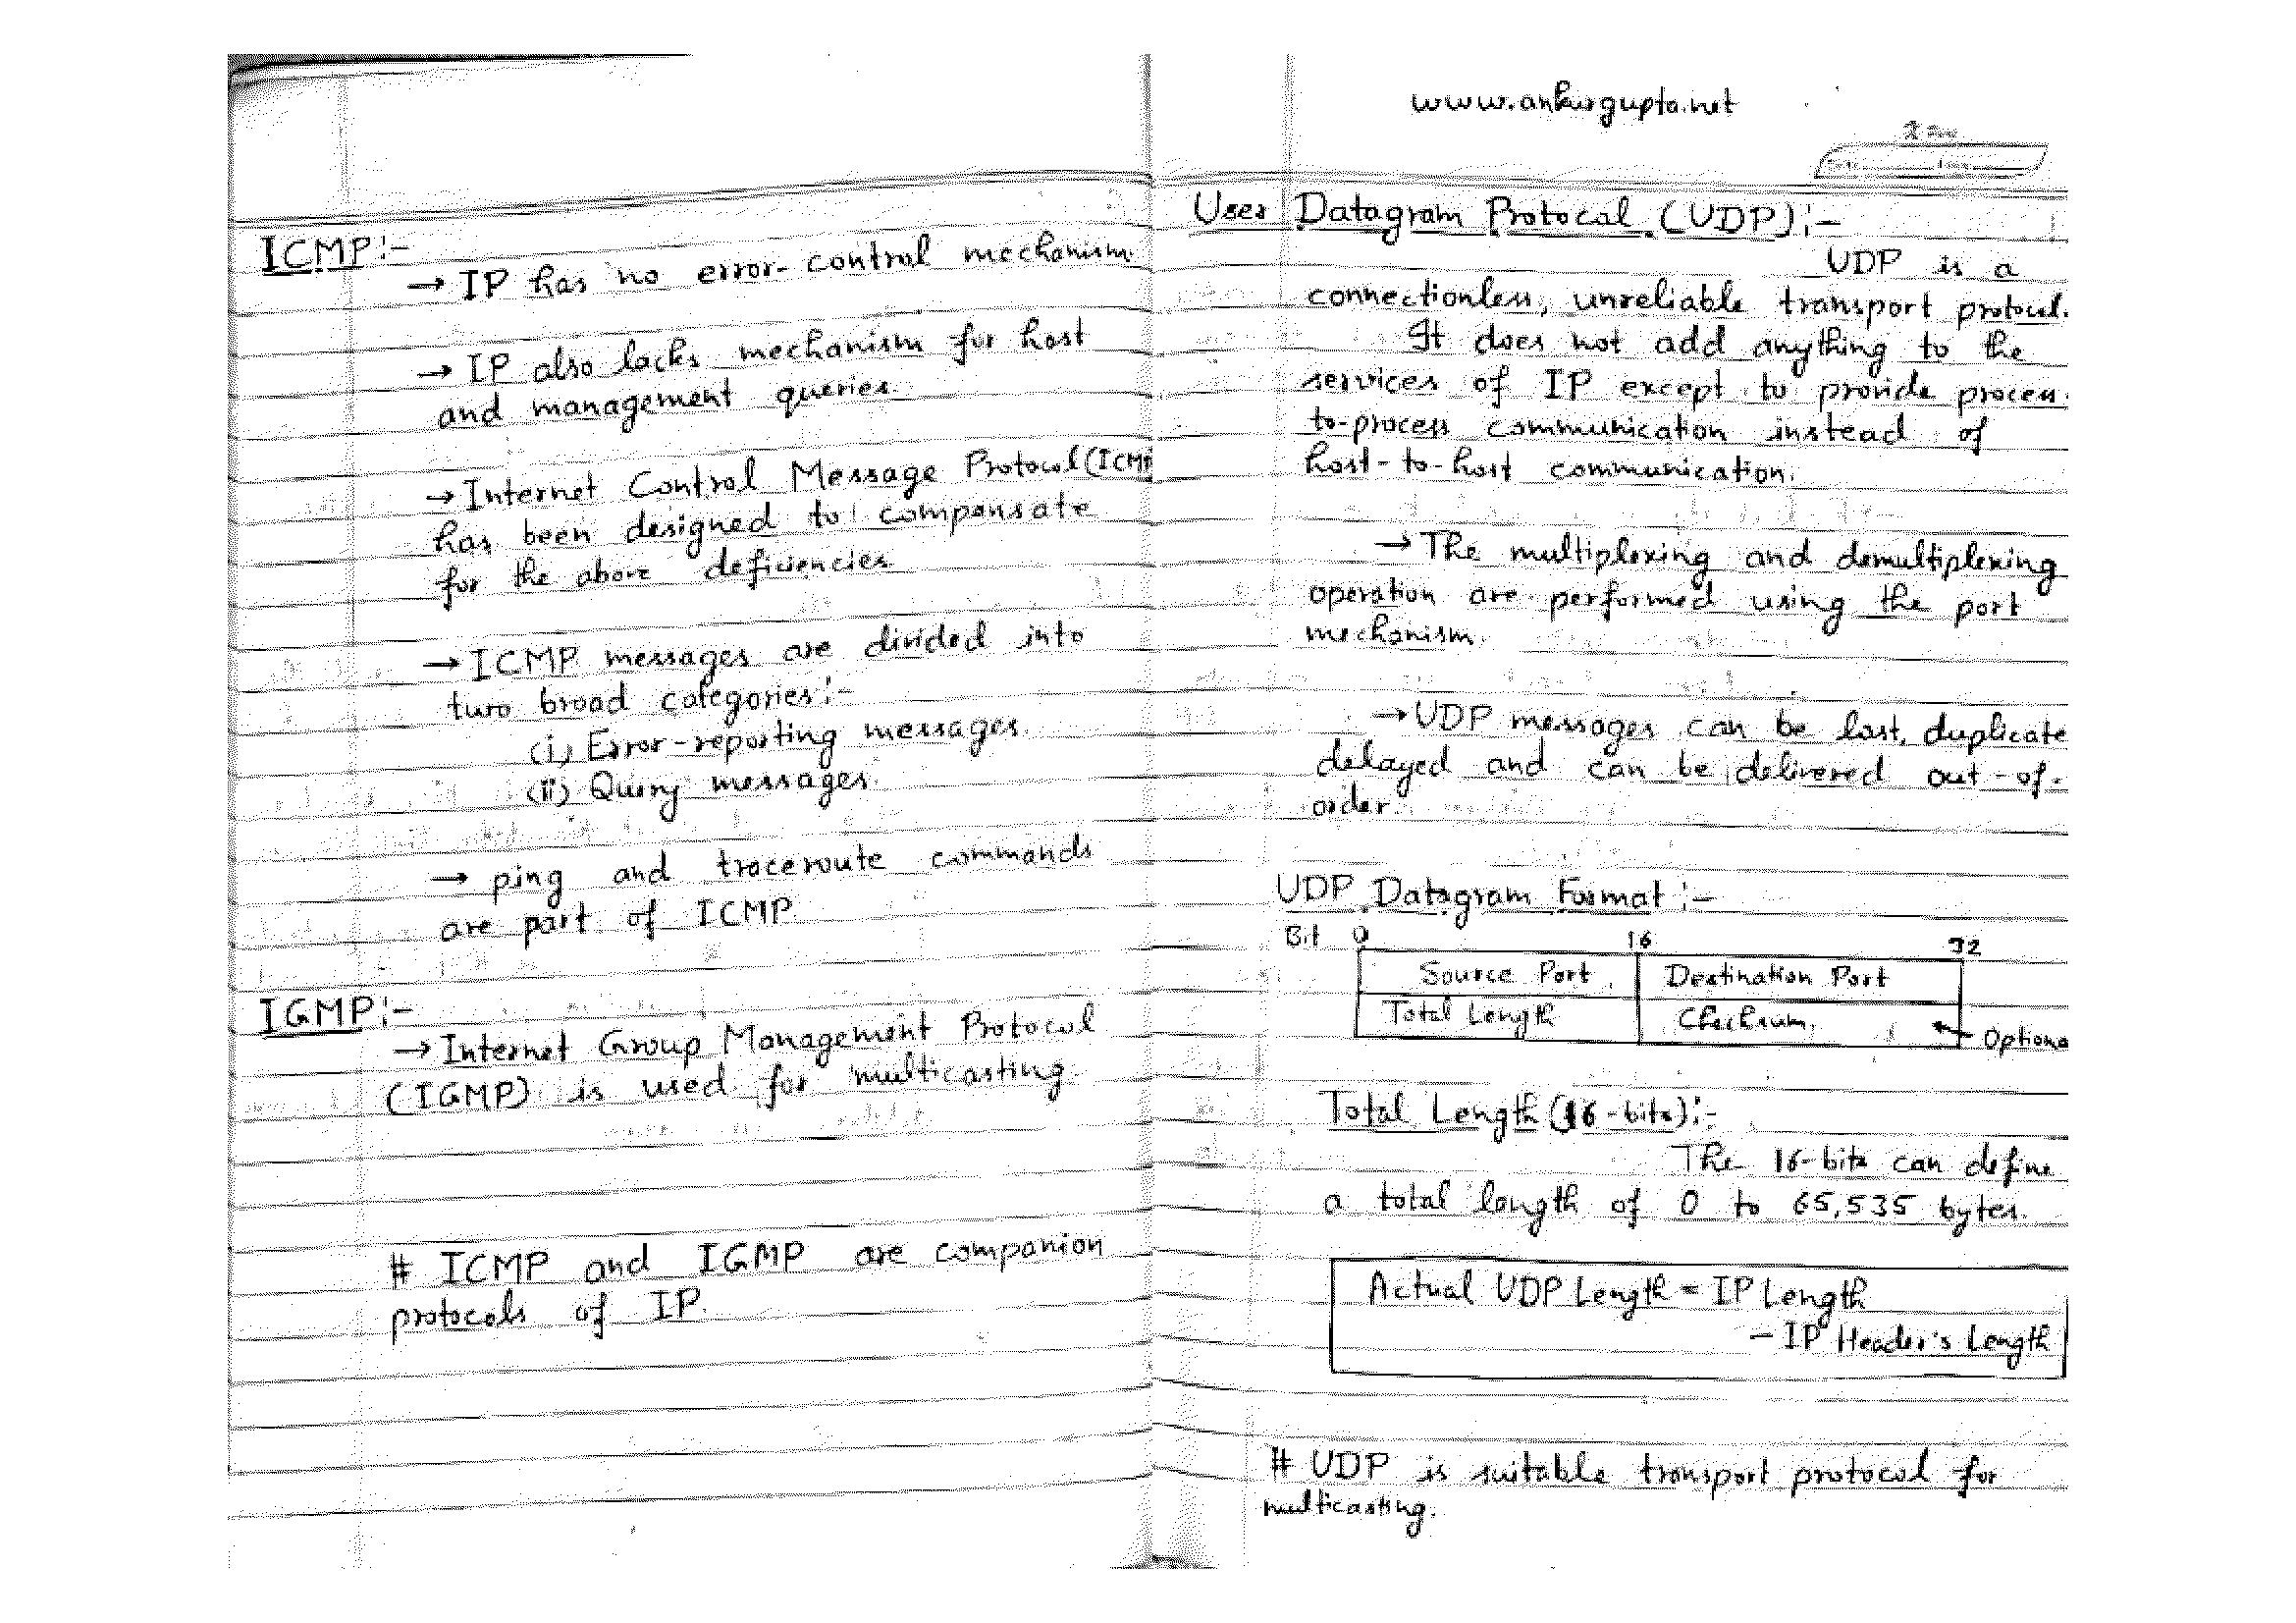 ICMP:-
→ IP has no error-control mechanism.
→ IP also lacks mechanism for host
and management queries.
→ Internet Control Message Protocol (ICMP
has been designed to compensate
for the above deficiencies.
→ ICMP messages are divided into
two broad categories:-
(i) Error-reporting messages.
(ii) Query messages.
→ ping and traceroute commands
are part of ICMP
IGMP:-
→ Internet Group Management Protocol
(IGMP) is used for multicasting.
# ICMP and IGMP are companion
protocols of IP.
www.ankurgupta.net
User Datagram Protocal (UDP):-
UDP is a
connectionless, unreliable transport protocol.
It does not add anything to the
services of IP except to provide process
to-process communication instead of
host-to-host communication.
→ The multiplexing and demultiplexing
operation are performed using the port
mechanism.
→ UDP messages can be lost, duplicate
delayed and can be delivered out-of-
order.
UDP Datagram Format:-
Bit 0 16 32
Source Port Destination Port
Total Length Checksum. ← Optiona
Total Length (16-bits):-
The 16-bits can define
a total length of 0 to 65,535 bytes.
Actual UDP Length = IP Length
- IP Header's Length
# UDP is suitable transport protocol for
multicasting.